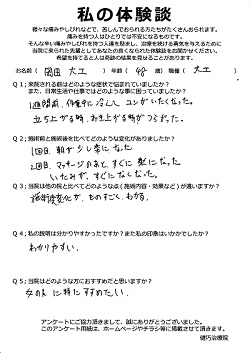 私の体験談
様々な痛みやしびれなどで、苦しんでおられる方たちがたくさんおられます。
痛みを持つ人はひとりでは不安になるものです。
そんな辛い痛みやしびれを持つ人達を励まし、治療を続ける勇気を与えるために
当院に来られた先輩としてあなたの良くなられた体験談をお聞かせください。
希望を持てると人は奇跡の結果を見せることがあります。
お名前（ 岡田 大工 ）年齢（ 48 歳）職種（ 大工
Ｑ１；来院される前はどのような症状で悩まれていましたか？
また、日常生活や仕事ではどのような事に困っていましたか？
1週間前、仕事中に
立ち上がる時、起き上がる時がつらかった。
Ｑ２；施術前と施術後を比べてどのような変化がありましたか？
1回目、朝が少し楽になった
2回目、マッサージのあと、すぐに楽になった。
いたみが、すぐになくなった。
Ｑ３；当院は他の院と比べてどのような点（施術内容・効果など）が違いますか？
施術後変化が、ものすごく、わかる。
Ｑ４；私の説明は分かりやすかったですか？また私の印象はいかがでしたか？
わかりやすい。
Ｑ５；当院はどのような方におすすめだと思いますか？
女の人に特にすすめたい。
アンケートにご協力頂きまして、誠にありがとうございました。
このアンケート用紙は、ホームページやチラシ等に掲載させて頂きます。
健巧治療院